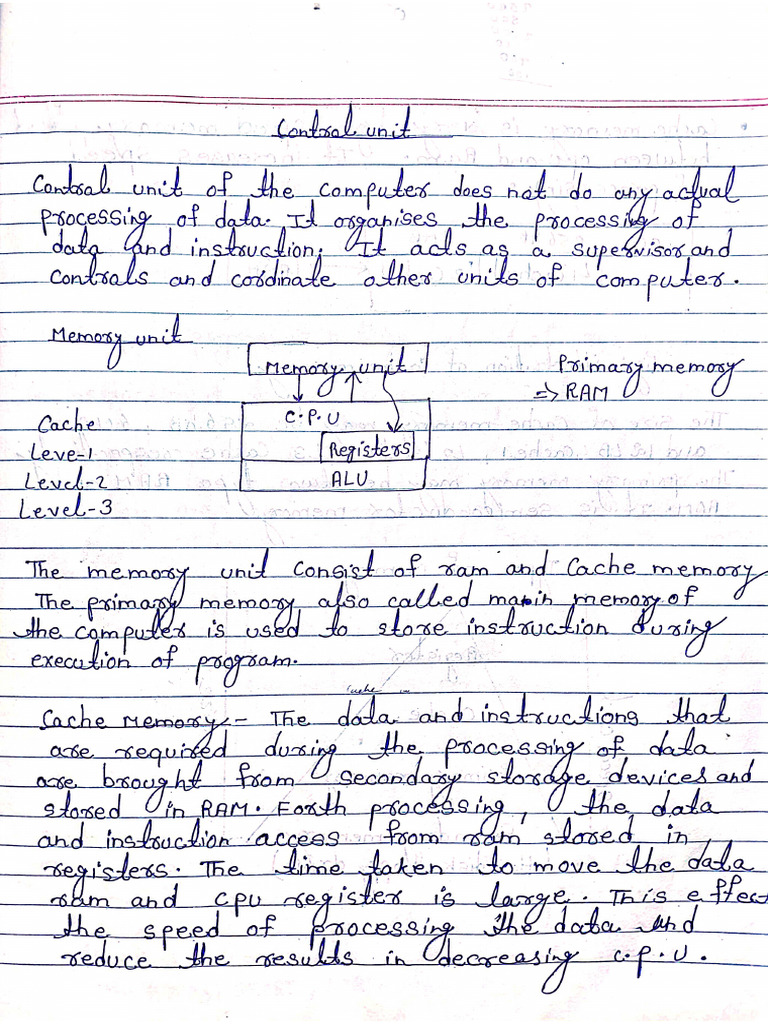 Control unit
Control unit of the computer does not do any actual
processing of data. It organises the processing of
data and instruction. It acts as a supervisor and
controls and cordinate other units of computer.
Memory unit
Memory unit
Primary memory
⇒ RAM
C.P.U
Cache
Registers
Leve-1
ALU
Level-2
Level-3
The memory unit consist of ram and Cache memory
The primary memory also called main memory of
the computer is used to store instruction during
execution of program.
cache
Cache Memory - The data and instructions that
are required during the processing of data
are brought from secondary storage devices and
stored in RAM. Forth processing, the data
and instruction access from ram stored in
registers. The time taken to move the data
ram and cpu register is large. This effect
the speed of processing the data and
reduce the results in decreasing C.P.U.